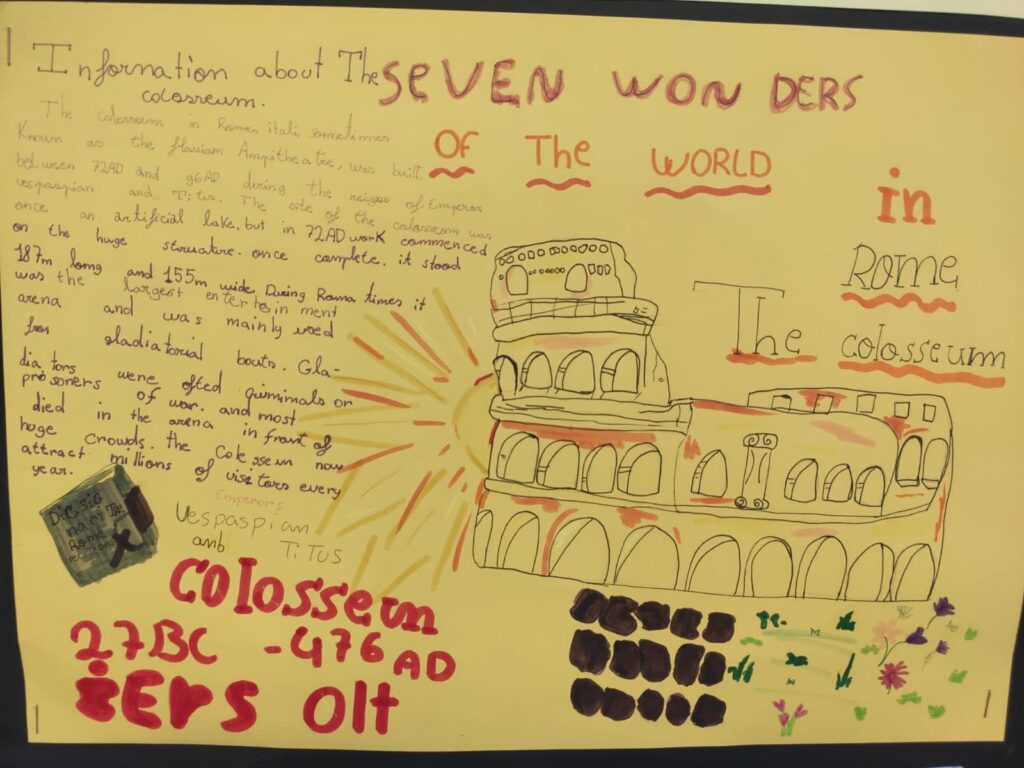 Information about The
colosseum.
SEVEN WONDERS
OF The WORLD
in
Rome
The colosseum
The colosseum in Rome, itali, sometimes
Known as the flaviam Ampitheatre, was built.
between 72AD and 96AD during the reigns of Emperor
vespaspian and Titus. The site of the colosseum was
once an artificial lake. but in 72AD work commenced
on the huge structure. once complete. it stood
187m long and 155m wide. During Roma times it
was the largest entertein ment
arena and was mainly used
for gladiatorial bouts. Gla-
dia tors were ofted
prisoners of war. and most
died in the arena in front of
hoge crowds. the now
attract millions of visitors every
year.
Emperors
Vespaspian
anb TiTUS
The
Roma
colossem
27BC - 476 AD
iERS Olt